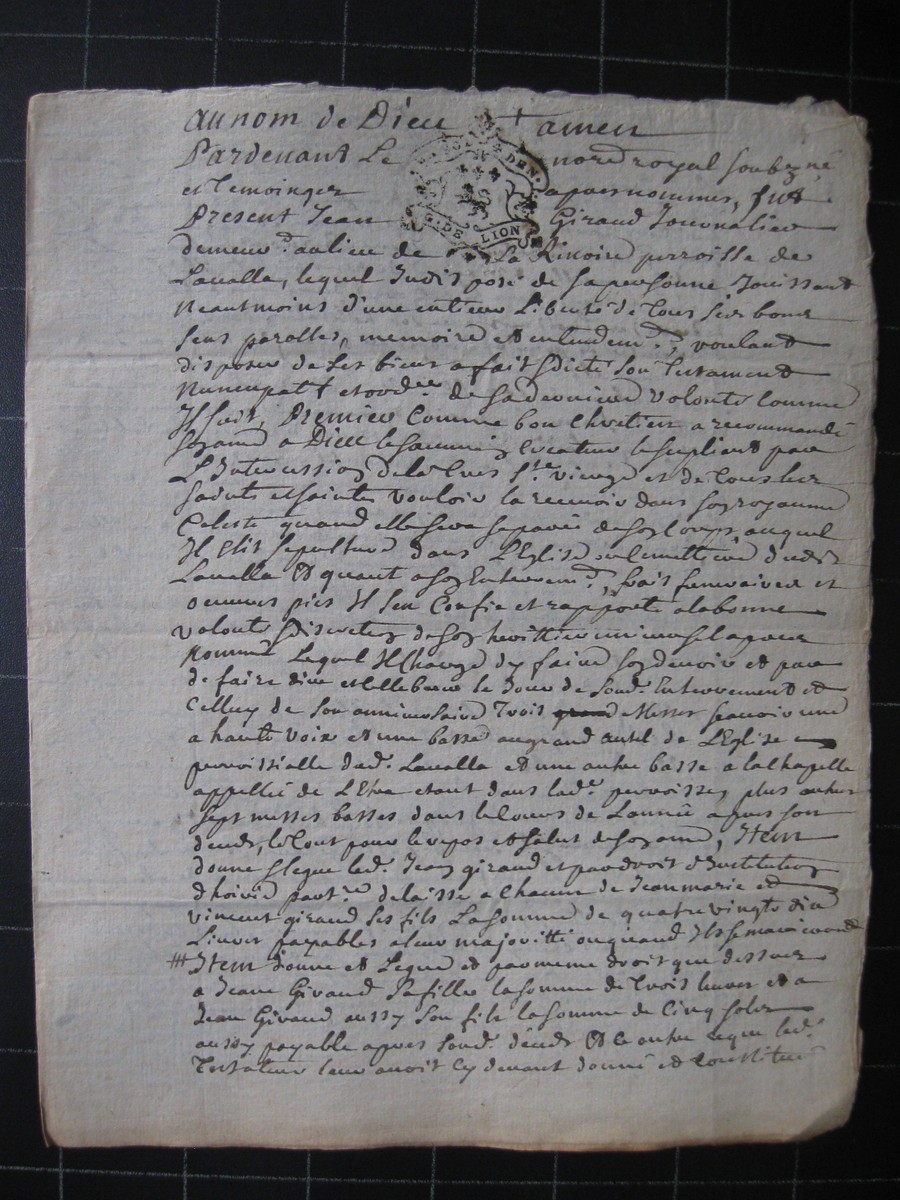 au nom de Dieu + amen
Pardevant Le no.re royal soubz.né
et temoinger apres nommes, fut
DEN. DE LION
Present Jean Giraud Journalier
demeur.t au lieu de La Rinoire parroisse de
Lavalla, lequel Indisposé de sa personne Jouissant
Neantmoins d'une entiere Liberté de tous ses bons
sens parolles, memoire et entendem.t, voulant
disposer de ses biens a fait & dicté son Testament
Nuncupatif et ord.re de sa derniere volonté Comme
Il suit, Premier Comme bon Chretien a recommandé
son ame a Dieu le souverain Createur le supliant par
L'Intercession de la tres S.te vierge et de tous les
saints et saintes vouloir la recevoir dans son royaume
Celeste quand elle sera separée de son Corps, auquel
Il Elit sepulture dans L'Eglise ou Cimettiere dud.t
Lavalla Et quant a son Enterrem.t, frais funeraires et
oeuvres pies Il s'en Confie et rapporte a la bonne
volonté & discretion de son herittier universel apres
Nommé Lequel Il Charge d'y faire son devoir et par
de faire dire et cellebrer le Jour de sond. Enterrement et
Celluy de son anniversaire Trois Messes scavoir une
a haute voix et une basse au grand autel de L'Eglise
parroissialle dud. Lavalla et une autre basse a la Chapelle
appellée de L'Etra etant dans lad. parroisse, plus autres
sept messes basses dans le Cours de L'année apres son
deceds, le tout pour le repos et salut de son ame, Item
donne & legue led. Jean giraud et par droit d'Institution
d'hoirie part.re delaisse a Chacun de Jean marie et
vincent giraud ses fils La somme de quatre vingts dix
Livres payables a leur majoritté ou quand Ils se marieront
Item Donne et Legue et par meme droit que dessus
a Jeane Giraud sa fille la somme de trois livres et a
Jean Giraud aussy son fils la somme de Cinq sols
aussy payable apres sond. deceds Et ce outre ce que led.
Testateur leur avoit Cy devant donné et Constitué